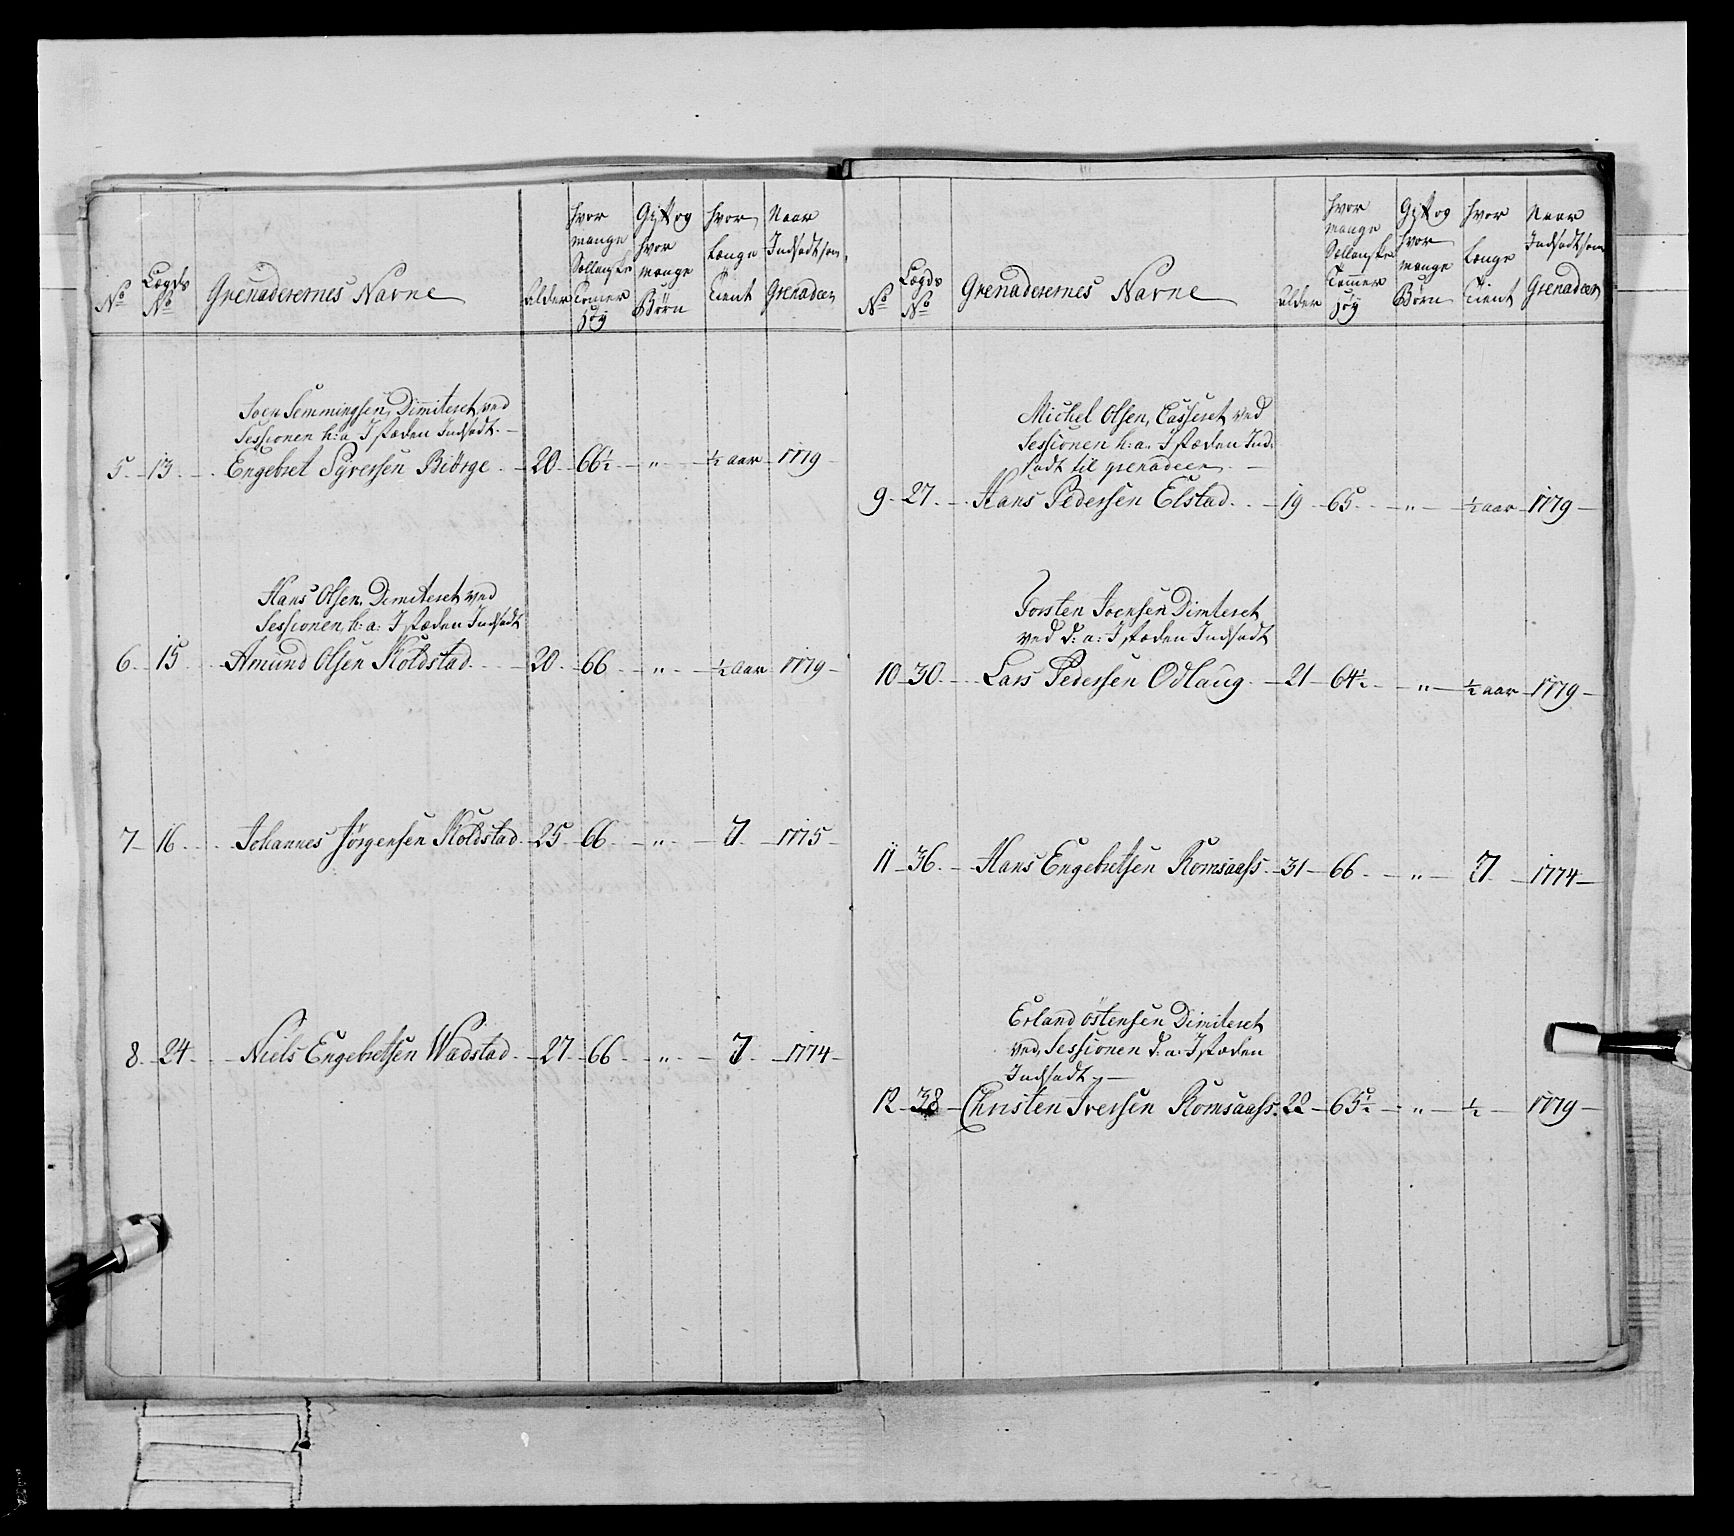 No
Lægds No
Grenaderernes Navne
Alder
hvor mange Sællandske Tomer høy
Gift og hvor mange Børn
hvor Længe Tient
Naar Indsadt som Grenadeer
Joen Semmingsen, Dimiteret ved
Sessionen h: a: I stæden Indsadt.
5. 13. Engebret Syversen Biörge. 20. 66½ " ½ aar 1779
Hans Olsen, Dimiteret ved
Sessionen h: a: I stæden Indsadt
6. 15. Amund Olsen Koldstad. 20. 66 " ½ aar 1779
7 16. Johannes Jörgensen Koldstad. 25. 66 " 7. 1775
8. 24. Niels Engebretsen Wadstad. 27 66 " 7. 1774
No
Lægds No
Grenaderernes Navne
Alder
hvor mange Sællandske Tommer høy
Gift og hvor mange Børn
hvor Længe Tient
Naar Indsadt som Grenadeer
Michel Olsen, Casseret ved
Sessionen h: a: I stæden Ind-
sadt til grenadeer.
9. 27. Hans Pedersen Elstad. 19 65. " ½ aar 1779
Torsten Joensen Dimteret
ved d: a: I stæden Indsadt
10 30. Lars Pedersen Odlaug. 21 64½ " ½ aar 1779
11 36. Hans Engebretsen Romsaass. 31 66. " 7. 1774
Erland östensen Dimiteret
ved Sessionen d: a: I stæden
Indsadt
12 38 Christen Iversen Romsaass. 22 65½ " ½ 1779